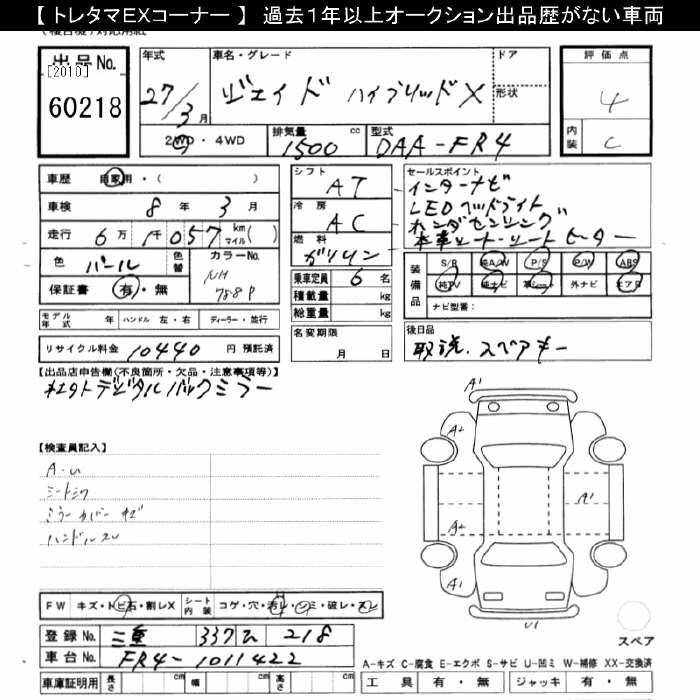 【 トレタマEXコーナー 】 過去１年以上オークション出品歴がない車両
出品No.
[2010]
60218
年式 27/3月
車名・グレード ジェイド ハイブリッドX
ドア
形状
評価点 4
内装 C
2WD・4WD
排気量 1500 cc
型式 DAA-FR4
車歴 自家用・( )
車検 8年 3月
走行 6万1千057 km マイル( )
色 パール
色替
カラーNo. NH 788P
保証書 有・無
シフト AT
冷房 AC
燃料 ガソリン
乗車定員 6名
積載量 kg
総重量 kg
セールスポイント
インターナビ
LEDヘッドライト
ホンダセンシング
本革シート・シートヒーター
装備品
S/R 純A/W P/S P/W ABS
純TV 純ナビ 革シート 外ナビ エアB
ナビ型番：
モデル年式 年 ハンドル 左・右 ディーラー・並行
リサイクル料金 10440 円 預託済
名変期限 月 日
後日品
取説、スペアキー
【出品店申告欄(不良箇所・欠品・注意事項等)】
社外デジタルバックミラー
【検査員記入】
A・U
シートシワ
ミラーカバーキズ
ハンドルスレ
A1
A2
A1
A2
A1
U1
FW キズ・トビ石・割レX
シート内装 コゲ・穴・汚レ・シミ・破レ・スレ
登録No. 三重 337 ひ 218
車台No. FR4-1011422
車庫証明用 長さ cm 幅 cm 高さ cm
スペア
A-キズ C-腐食 E-エクボ S-サビ U-凹ミ W-補修 XX-交換済
工具 有・無 ジャッキ 有・無